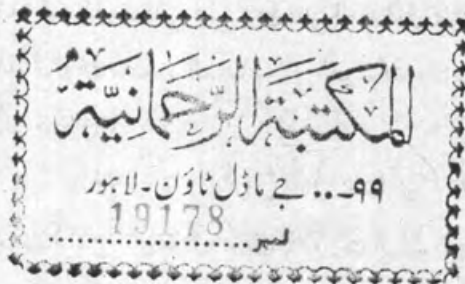 المكتبة الرحمانية
۹۹-.. جے ماڈل ٹاؤن-لاہور
نمبر.....19178.....